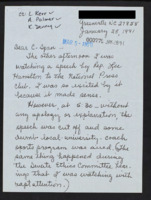 cc: L. Rose
A. Palmer
K. Dewey
Greenville NC 27858
January 30, 1991
Dear C-Span -
The other afternoon I was
watching a speech by Rep. Lee
Hamilton to the National Press
Club. I was so excited by it
because it made sense.
However, at 6:30 - without
any apology or explanation, the
speech was cut off and some
local university coach
sports program was aired (the
same thing happened during
the Senate Ethics Committee hearing
that I was watching with
rapt attention.)